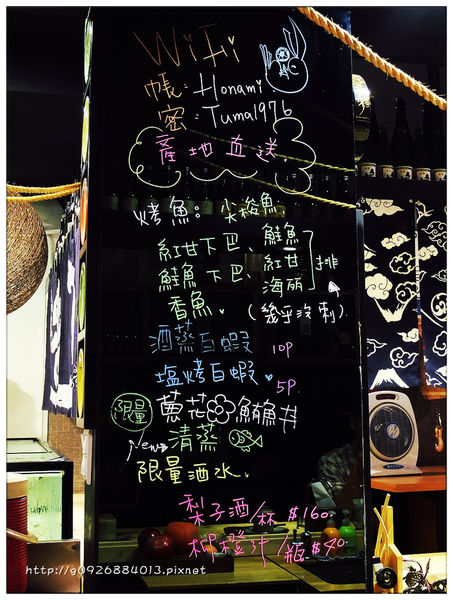 WiFi
帳：Honami
密：Tuma1976
產地直送
烤魚。尖梭魚
紅甘下巴、鮭魚
鮭魚下巴、紅甘 排
海丽
香魚。 (幾乎沒刺)
酒蒸白蝦 10P
塩烤白蝦。 5P
限量 蔥花鮪魚丼
New 清蒸
限量酒水。
梨子酒/杯 $160.
柳橙汁/瓶 $40.
http://g0926884013.pixnet